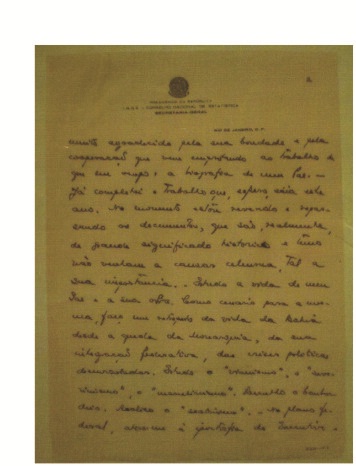 2
PRESIDÊNCIA DA REPÚBLICA
I.B.G.E. - CONSELHO NACIONAL DE ESTATÍSTICA
SECRETARIA-GERAL
RIO DE JANEIRO, D. F.
muito agradecido pela sua bondade e pela
cooperação que vem emprestando ao trabalho a
que me : a biografia de meu Pai. —
Já completei o trabalho que, espero sairá este
ano. No momento estou revendo e
os documentos, que são, realmente,
de grande significado histórico e
não venham a causar celeuma, tal a
sua importância. . Estudo a vida de meu
Pai e a sua obra. Como cenário para a
, faço um retrospecto da vida da Bahia
desde a queda da Monarquia, da sua
integração federativa, das crises políticas
. Estudo o "vianismo", o "
", o "marcelinismo". Descrevo o bombar
deio. o "seabrismo". . No plano fe-
deral, a